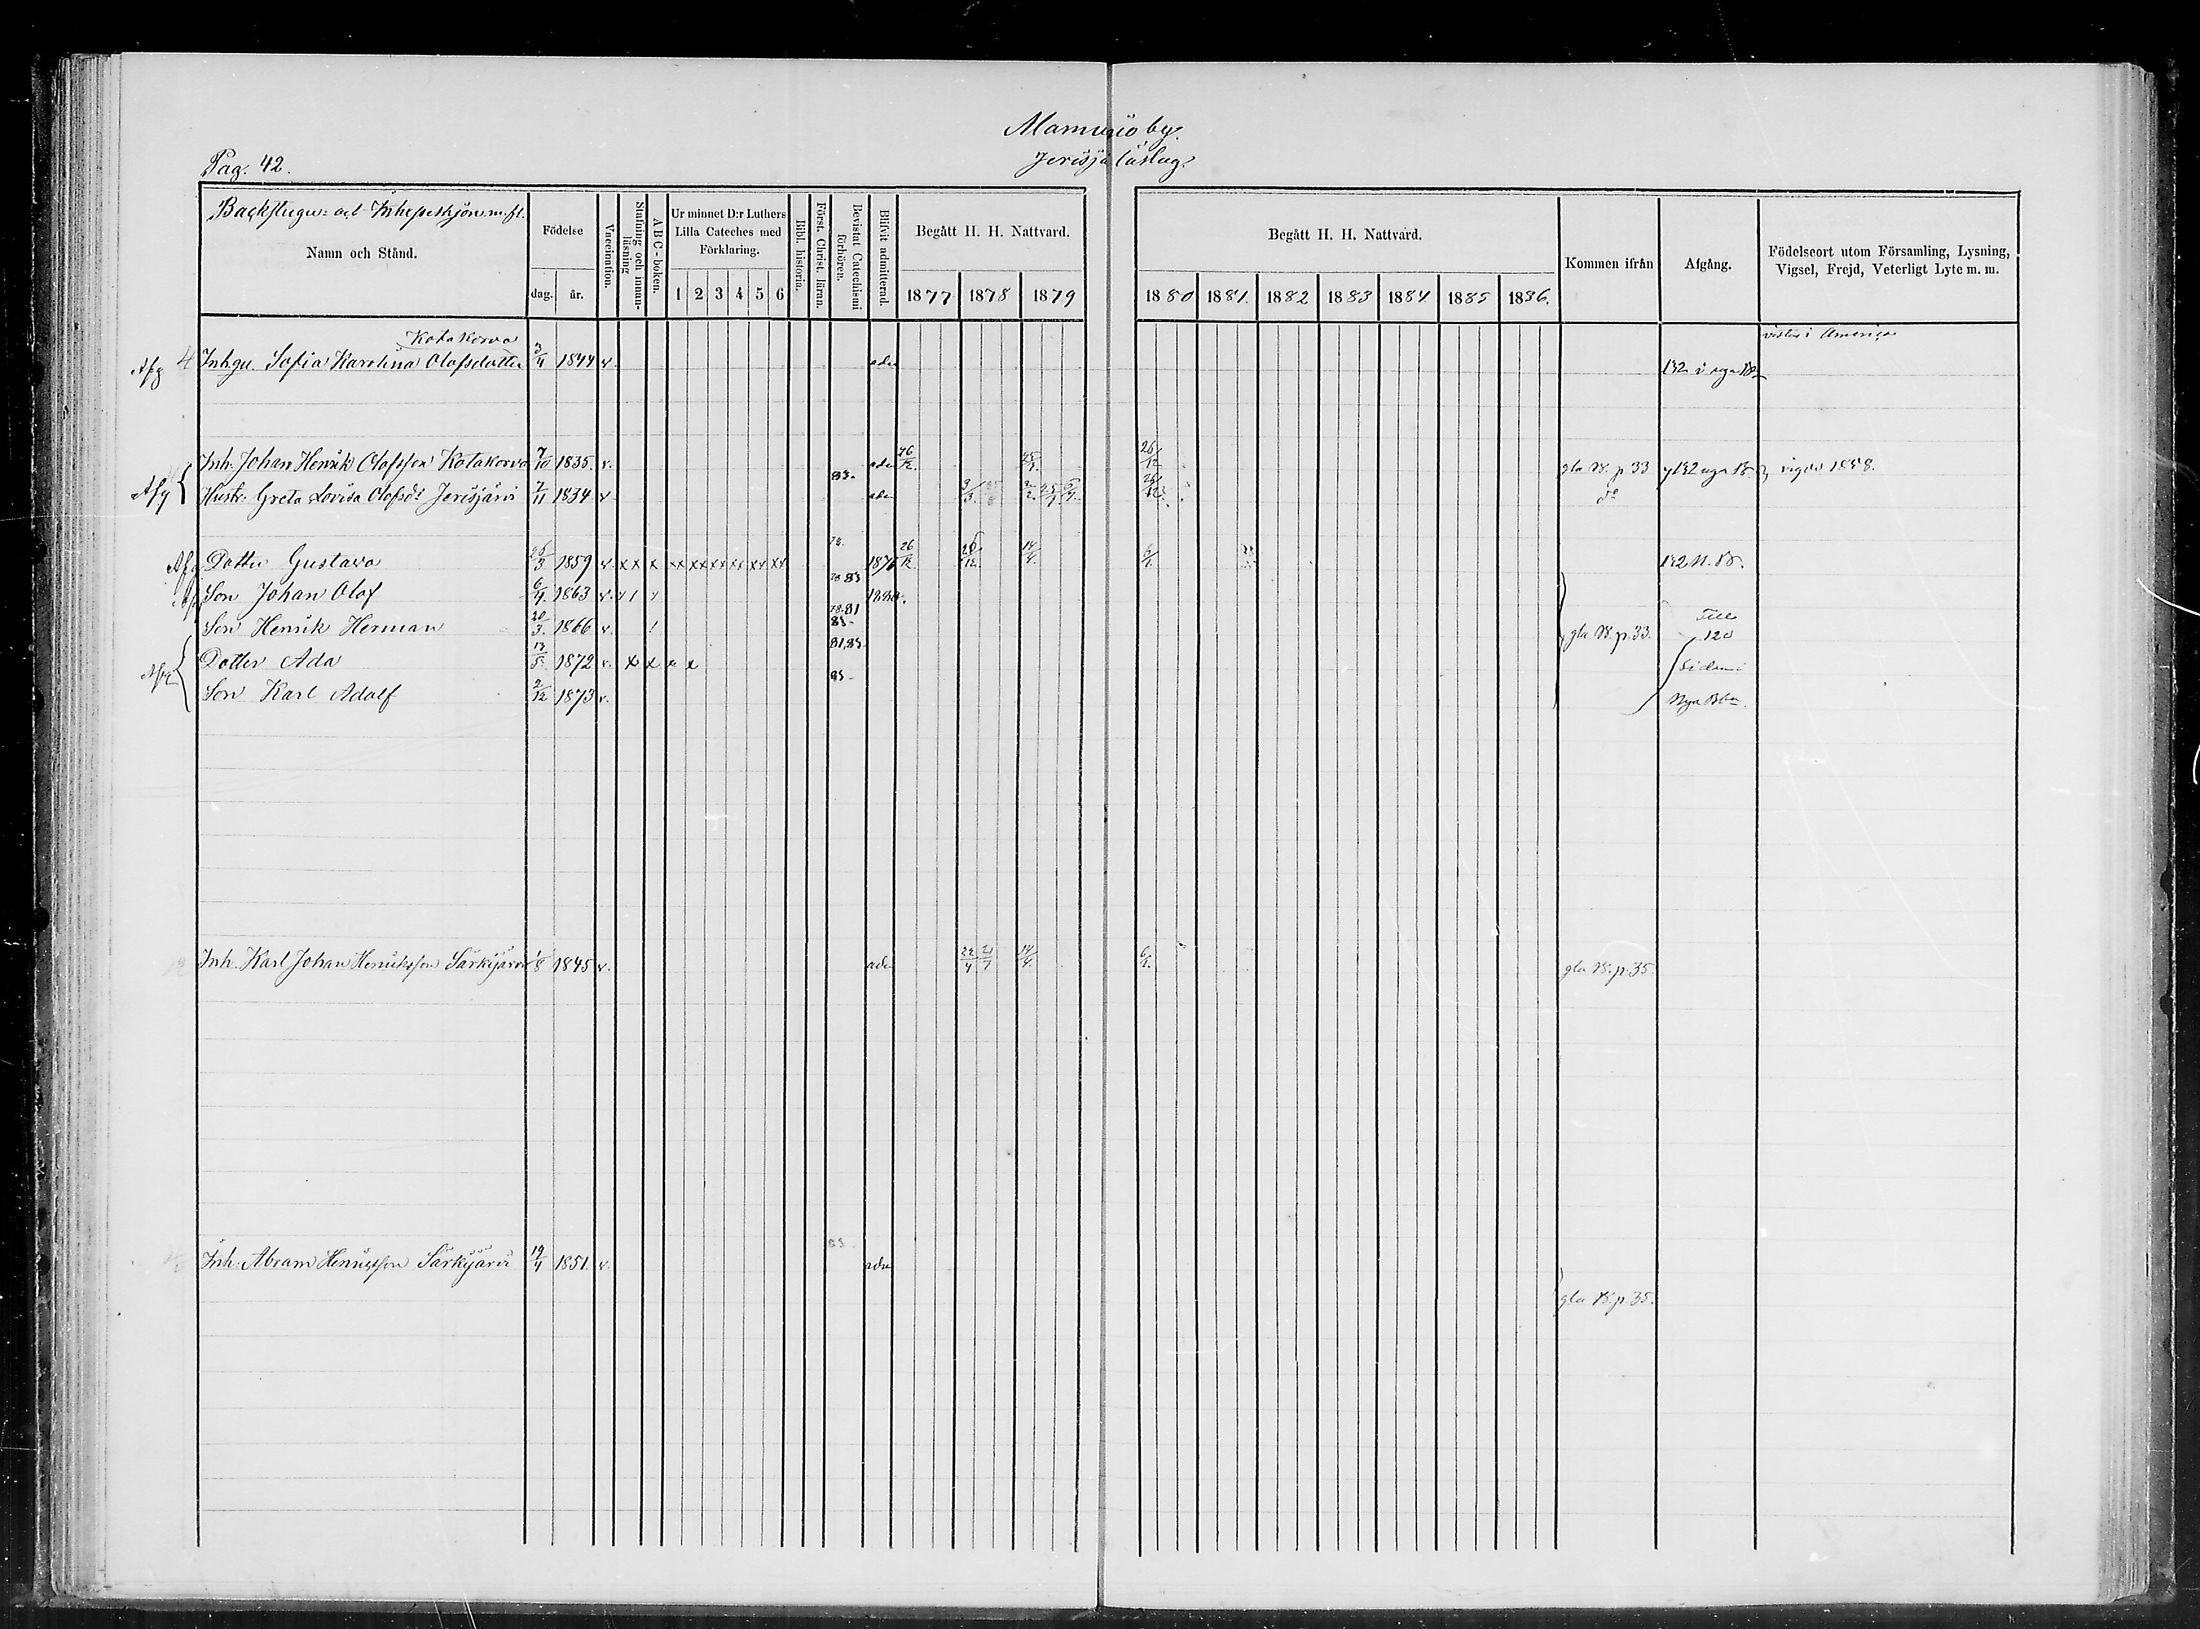 Muonio by.
Pag. 42.
Jerisjärvi uslag.
Backstugu- och Inhyseshjon m. fl.
Namn och Stånd.
Födelse
dag. år.
Vaccination.
Stafning och innan-läsning
ABC-boken.
Ur minnet D:r Luthers Lilla Cateches med Förklaring.
1 2 3 4 5 6
Bibl. historia.
Först. Christ. läran.
Bevistat Catechismi förhören.
Blifvit admitterad.
Begått H. H. Nattvard.
1877 1878 1879
Begått H. H. Nattvard.
1880 1881. 1882 1883 1884 1885 1886.
Kommen ifrån
Afgång.
Födelseort utom Församling, Lysning, Vigsel, Frejd, Veterligt Lyte m. m.
Kotakorva vistas i America
Afg Inhqu. Sofia Karolina Olofsdotter 3/4 1844 v. adm 132 i nya Bn
Inh. Johan Henrik Olofsson Kotakorva 7/10 1835. v. adm 26/12. 25/4. 26/12 gla B. p. 33 132 nya B. vigde 1858.
Afg Hustr. Greta Lovisa Olofsdr Jerisjärvi 7/11 1834 v. 83. adm 3/3. 2/2. 25/4 6/7. 26/12 do
Afg Dotter Gustava 26/3 1859 v. x x x xx xx xx xx xx xx 78. 1876 26/12. 26/12. 14/4. 6/1. 132 N. B.
Afg Son Johan Olof 6/4. 1863 v. 78 83
Son Henrik Herman 20/3. 1866 v. 78. 81 83- gla B. p. 33. Till 120
Afg Dotter Ada 13/5. 1872 v. x x x x 81, 83. Sidan i
Son Karl Adolf 2/12 1873 v. 83- Nya Bkn.
Inh. Karl Johan Henriksson Särkijärvi 1/8 1845 v. adm 22/4 21/7 14/4. 6/1. gla B. p. 35.
Inh. Abram Henriksson Särkijärvi 19/4 1851. v. 83. adm
gla B. p. 35.